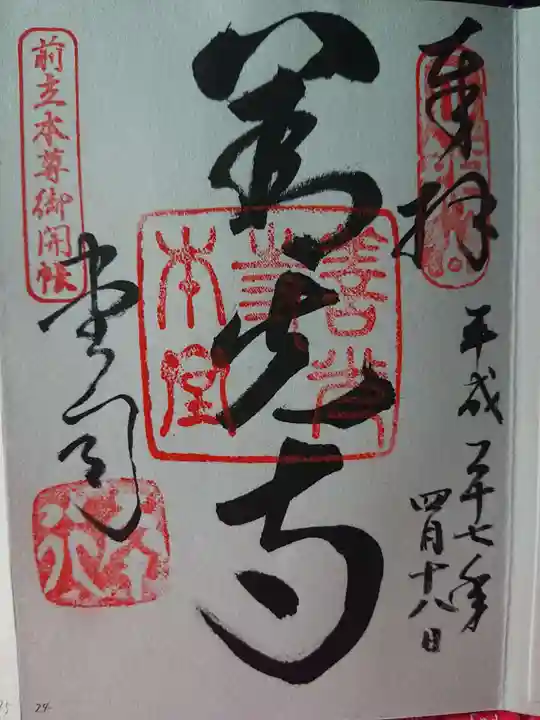 奉拝
平成二十七年
四月十八日
善光寺
善光
寺
本堂
前立本尊御開帳
堂司
24